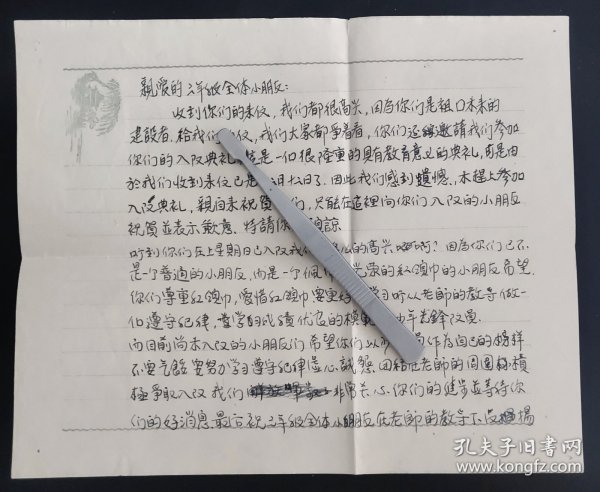 親愛的三年级全体小朋友:
收到你们的来仪,我们都很高兴,因為你们是祖口未来的
建設者.给我们 仪,我们大家都争着看,你们还邀請我们参加
你们的入队典礼, 是一個很隆重的具有教育意义的典礼,可是由
於我们收到来仪已是 月 日了.因此我们感到遺憾,.未趕上参加
入队典礼,親自来祝賀 们,只能在這裡向你们入队的小朋友
祝賀並表示歉意.特請你 原諒
听到你们在上星期日已入队我 的高兴 啊?因為你们已不
是一个普通的小朋友.而是一个佩 光荣的红領巾的小朋友希望.
你们尊重红領巾,愛惜红領巾要更好 学习听从老師的教导做一
個遵守纪律,学习成績优良的模範 少年先鋒队員.
而目前尚未入队的小朋友们希望你们以 作為自己的榜样
不要气餒要努力学习遵守纪律虚心誠懇.团結在老師的周圍積
極爭取入队我们 非常关心你们的進步並等待你
们的好消息.最后祝三年级全体小朋友在老師的教导下发揚
孔夫子旧书网
www.kongfz.com